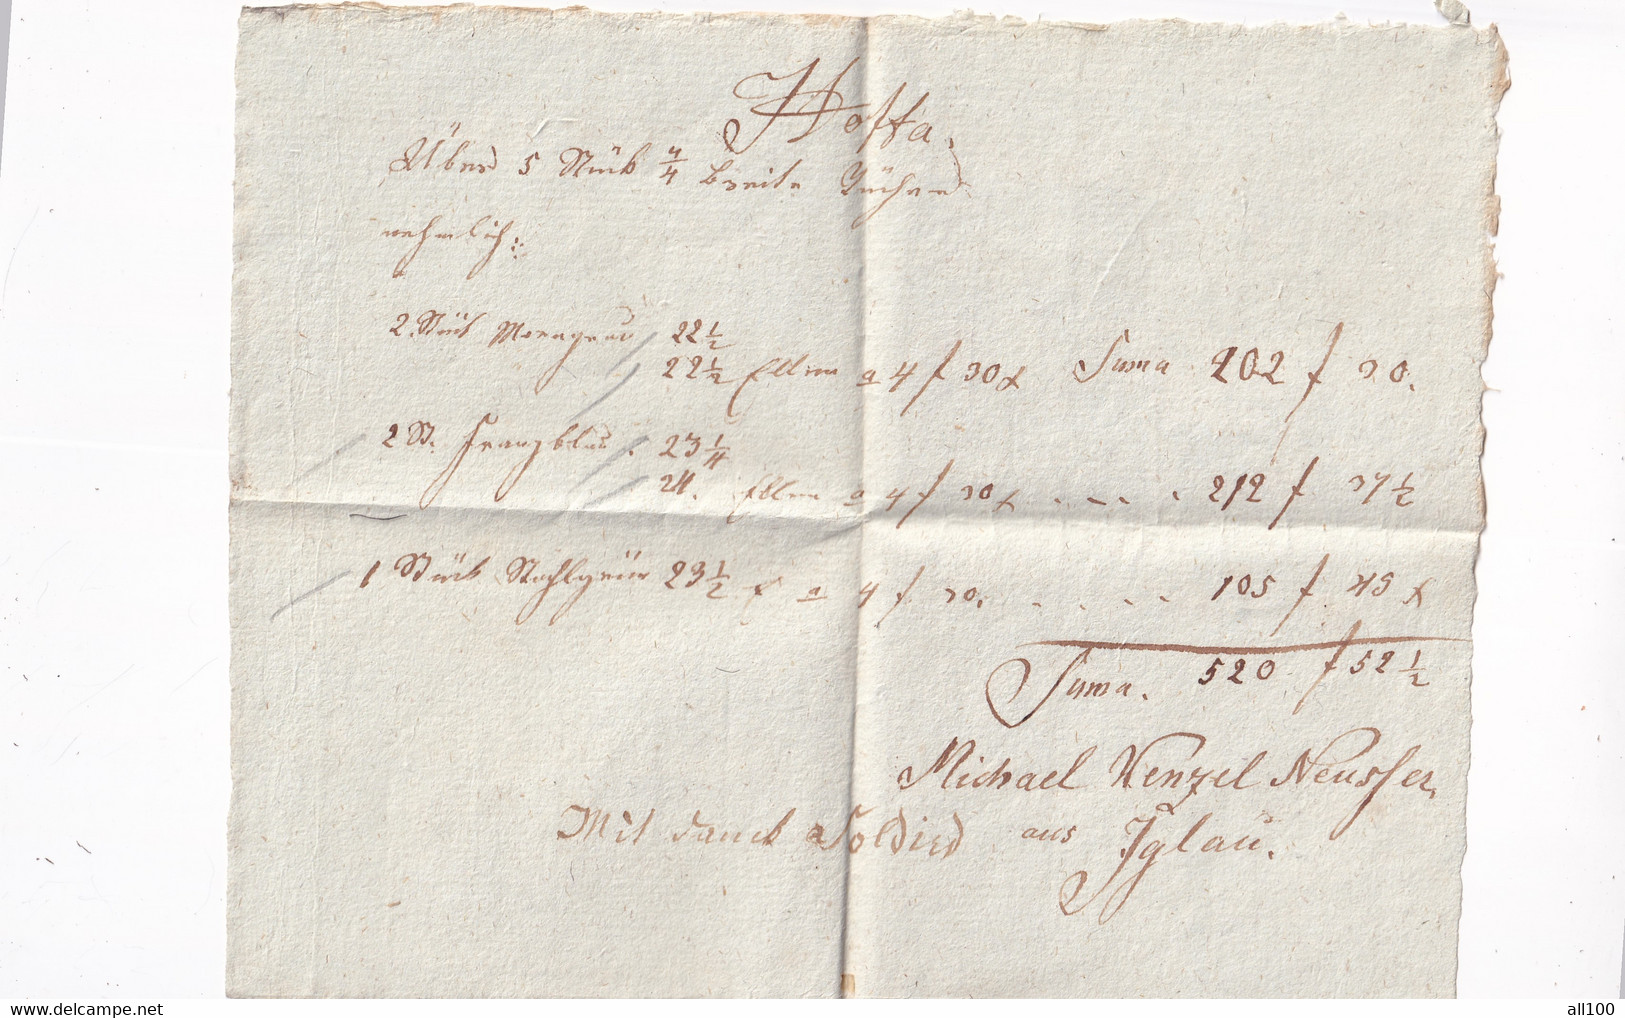 Nosta.
Über 5 Stück 7/4 breite Tücher
nehmlich:
2 Stück Morengrau 22 1/2
22 1/2 Ellen a 4 f 30 x Suma 202 f 30.
2 St. Franzblau. 23 1/4
24. Ellen a 4 f 30 x . . . . 212 f 37 1/2
1 Stück Stahlgrün 23 1/2 E a 4 f 30. . . . . 105 f 45 x
Suma. 520 f 52 1/2
Michael Wenzel Neusser,
Mit danck Soldird aus Iglau.
all100